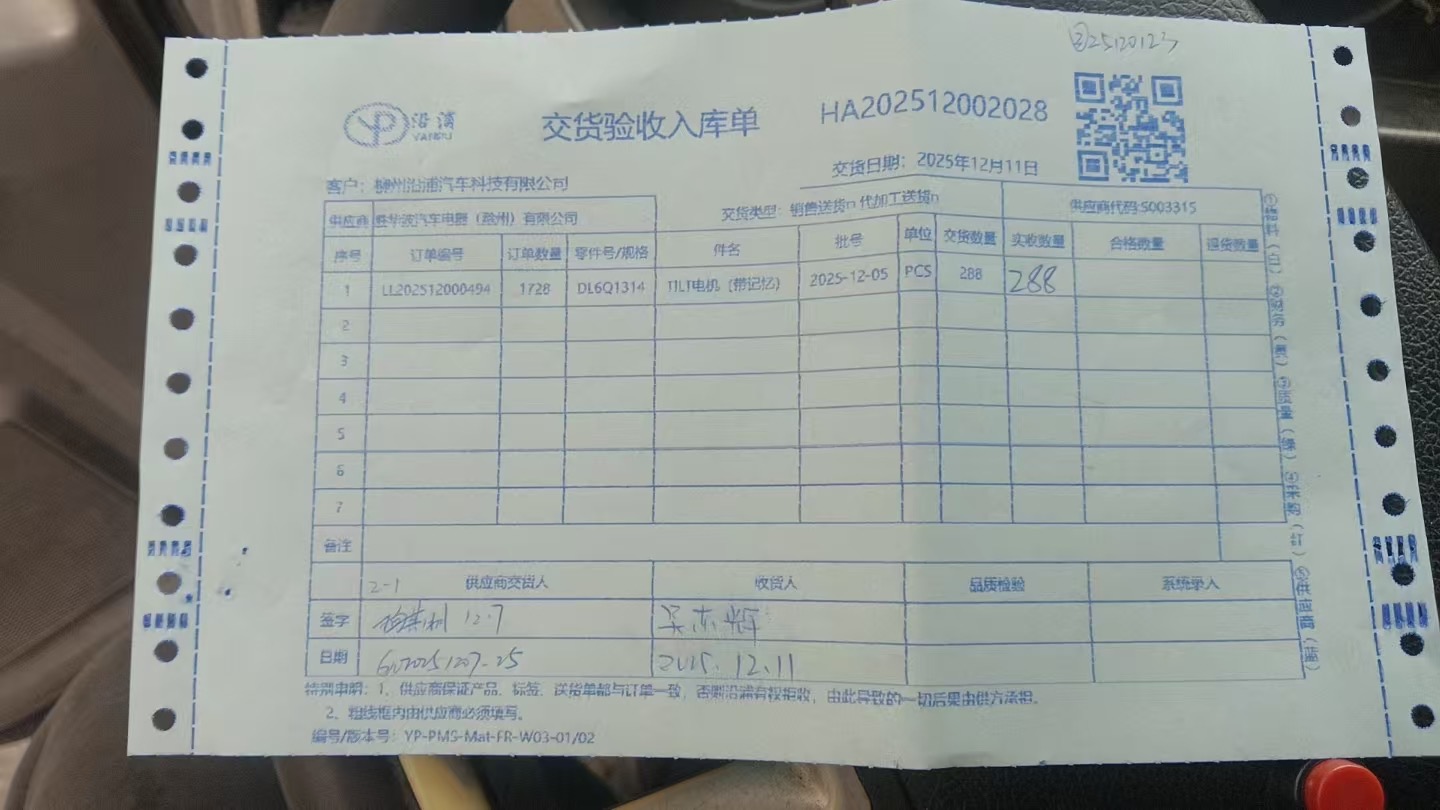 25120123
沿浦
YANPU
交货验收入库单
HA202512002028
交货日期：2025年12月11日
客户：柳州沿浦汽车科技有限公司
供应商 胜华波汽车电器（滁州）有限公司 交货类型：销售送货n 代加工送货n 供应商代码:S003315
序号 订单编号 订单数量 零件号/规格 件名 批号 单位 交货数量 实收数量 合格数量 退货数量
1 LL202512000494 1728 DL6Q1314 TILT电机（带记忆） 2025-12-05 PCS 288 288
2
3
4
5
6
7
备注
2-1 供应商交货人 收货人 品质检验 系统录入
签字 12.7
日期 2025.12.11
特别申明：1、供应商保证产品、标签、送货单都与订单一致，否则沿浦有权拒收，由此导致的一切后果由供方承担。
2、粗线框内由供应商必须填写。
编号/版本号：YP-PMS-Mat-FR-W03-01/02
①物料（白）②财务（黄）③质量（绿）④采购（红）⑤供应商（蓝）